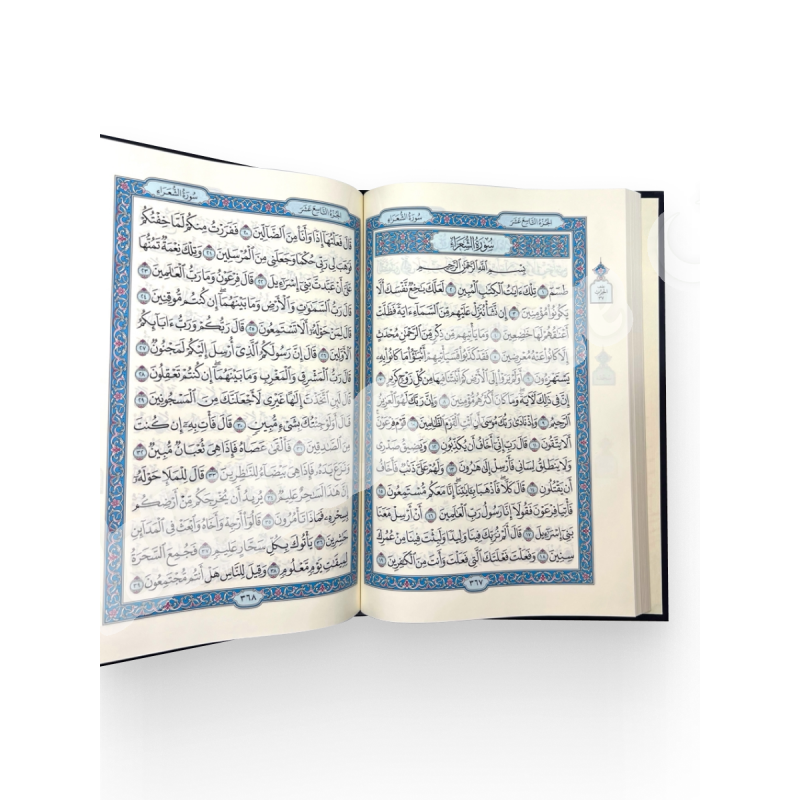 الجزء التاسع عشر
سورة الشعراء
سُورَةُ الشُّعَرَاءِ
بِسْمِ ٱللَّهِ ٱلرَّحْمَٰنِ ٱلرَّحِيمِ
طسٓمٓ ١ تِلْكَ ءَايَٰتُ ٱلْكِتَٰبِ ٱلْمُبِينِ ٢ لَعَلَّكَ بَٰخِعٌ نَّفْسَكَ أَلَّا
يَكُونُوا۟ مُؤْمِنِينَ ٣ إِن نَّشَأْ نُنَزِّلْ عَلَيْهِم مِّنَ ٱلسَّمَآءِ ءَايَةً فَظَلَّتْ
أَعْنَٰقُهُمْ لَهَا خَٰضِعِينَ ٤ وَمَا يَأْتِيهِم مِّن ذِكْرٍ مِّنَ ٱلرَّحْمَٰنِ مُحْدَثٍ
إِلَّا كَانُوا۟ عَنْهُ مُعْرِضِينَ ٥ فَقَدْ كَذَّبُوا۟ فَسَيَأْتِيهِمْ أَنۢبَٰٓؤُا۟ مَا كَانُوا۟ بِهِۦ
يَسْتَهْزِءُونَ ٦ أَوَلَمْ يَرَوْا۟ إِلَى ٱلْأَرْضِ كَمْ أَنۢبَتْنَا فِيهَا مِن كُلِّ زَوْجٍ كَرِيمٍ ٧
إِنَّ فِى ذَٰلِكَ لَءَايَةً وَمَا كَانَ أَكْثَرُهُم مُّؤْمِنِينَ ٨ وَإِنَّ رَبَّكَ لَهُوَ ٱلْعَزِيزُ
ٱلرَّحِيمُ ٩ وَإِذْ نَادَىٰ رَبُّكَ مُوسَىٰٓ أَنِ ٱئْتِ ٱلْقَوْمَ ٱلظَّٰلِمِينَ ١٠ قَوْمَ فِرْعَوْنَ
أَلَا يَتَّقُونَ ١١ قَالَ رَبِّ إِنِّىٓ أَخَافُ أَن يُكَذِّبُونِ ١٢ وَيَضِيقُ صَدْرِى
وَلَا يَنطَلِقُ لِسَانِى فَأَرْسِلْ إِلَىٰ هَٰرُونَ ١٣ وَلَهُمْ عَلَىَّ ذَنۢبٌ فَأَخَافُ
أَن يَقْتُلُونِ ١٤ قَالَ كَلَّا فَٱذْهَبَا بِـَٔايَٰتِنَآ إِنَّا مَعَكُم مُّسْتَمِعُونَ ١٥
فَأْتِيَا فِرْعَوْنَ فَقُولَآ إِنَّا رَسُولُ رَبِّ ٱلْعَٰلَمِينَ ١٦ أَنْ أَرْسِلْ مَعَنَا
بَنِىٓ إِسْرَٰٓءِيلَ ١٧ قَالَ أَلَمْ نُرَبِّكَ فِينَا وَلِيدًا وَلَبِثْتَ فِينَا مِنْ عُمُرِكَ
سِنِينَ ١٨ وَفَعَلْتَ فَعْلَتَكَ ٱلَّتِى فَعَلْتَ وَأَنتَ مِنَ ٱلْكَٰفِرِينَ ١٩
٣٦٧
الجزء التاسع عشر
سورة الشعراء
قَالَ فَعَلْتُهَآ إِذًا وَأَنَا۠ مِنَ ٱلضَّآلِّينَ ٢٠ فَفَرَرْتُ مِنكُمْ لَمَّا خِفْتُكُمْ
فَوَهَبَ لِى رَبِّى حُكْمًا وَجَعَلَنِى مِنَ ٱلْمُرْسَلِينَ ٢١ وَتِلْكَ نِعْمَةٌ تَمُنُّهَا
عَلَىَّ أَنْ عَبَّدتَّ بَنِىٓ إِسْرَٰٓءِيلَ ٢٢ قَالَ فِرْعَوْنُ وَمَا رَبُّ ٱلْعَٰلَمِينَ ٢٣
قَالَ رَبُّ ٱلسَّمَٰوَٰتِ وَٱلْأَرْضِ وَمَا بَيْنَهُمَآ إِن كُنتُم مُّوقِنِينَ ٢٤
قَالَ لِمَنْ حَوْلَهُۥٓ أَلَا تَسْتَمِعُونَ ٢٥ قَالَ رَبُّكُمْ وَرَبُّ ءَابَآئِكُمُ
ٱلْأَوَّلِينَ ٢٦ قَالَ إِنَّ رَسُولَكُمُ ٱلَّذِىٓ أُرْسِلَ إِلَيْكُمْ لَمَجْنُونٌ ٢٧
قَالَ رَبُّ ٱلْمَشْرِقِ وَٱلْمَغْرِبِ وَمَا بَيْنَهُمَآ إِن كُنتُمْ تَعْقِلُونَ ٢٨
قَالَ لَئِنِ ٱتَّخَذْتَ إِلَٰهًا غَيْرِى لَأَجْعَلَنَّكَ مِنَ ٱلْمَسْجُونِينَ ٢٩
قَالَ أَوَلَوْ جِئْتُكَ بِشَىْءٍ مُّبِينٍ ٣٠ قَالَ فَأْتِ بِهِۦٓ إِن كُنتَ
مِنَ ٱلصَّٰدِقِينَ ٣١ فَأَلْقَىٰ عَصَاهُ فَإِذَا هِىَ ثُعْبَانٌ مُّبِينٌ ٣٢
وَنَزَعَ يَدَهُۥ فَإِذَا هِىَ بَيْضَآءُ لِلنَّٰظِرِينَ ٣٣ قَالَ لِلْمَلَإِ حَوْلَهُۥٓ
إِنَّ هَٰذَا لَسَٰحِرٌ عَلِيمٌ ٣٤ يُرِيدُ أَن يُخْرِجَكُم مِّنْ أَرْضِكُم
بِسِحْرِهِۦ فَمَاذَا تَأْمُرُونَ ٣٥ قَالُوٓا۟ أَرْجِهْ وَأَخَاهُ وَٱبْعَثْ فِى ٱلْمَدَآئِنِ
حَٰشِرِينَ ٣٦ يَأْتُوكَ بِكُلِّ سَحَّارٍ عَلِيمٍ ٣٧ فَجُمِعَ ٱلسَّحَرَةُ
لِمِيقَٰتِ يَوْمٍ مَّعْلُومٍ ٣٨ وَقِيلَ لِلنَّاسِ هَلْ أَنتُم مُّجْتَمِعُونَ ٣٩
٣٦٨